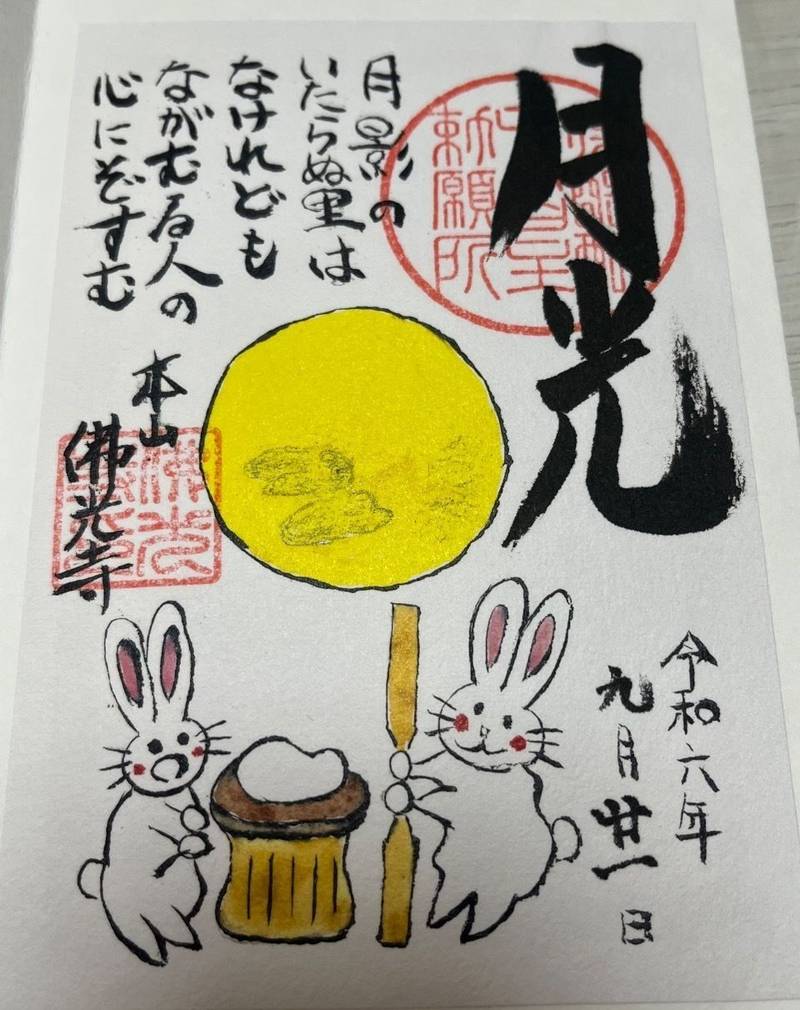 月光
勅願所
月影の
いたらぬ里は
なけれども
ながむる人の
心にぞすむ
本山
佛光寺
令和六年
九月廿一日